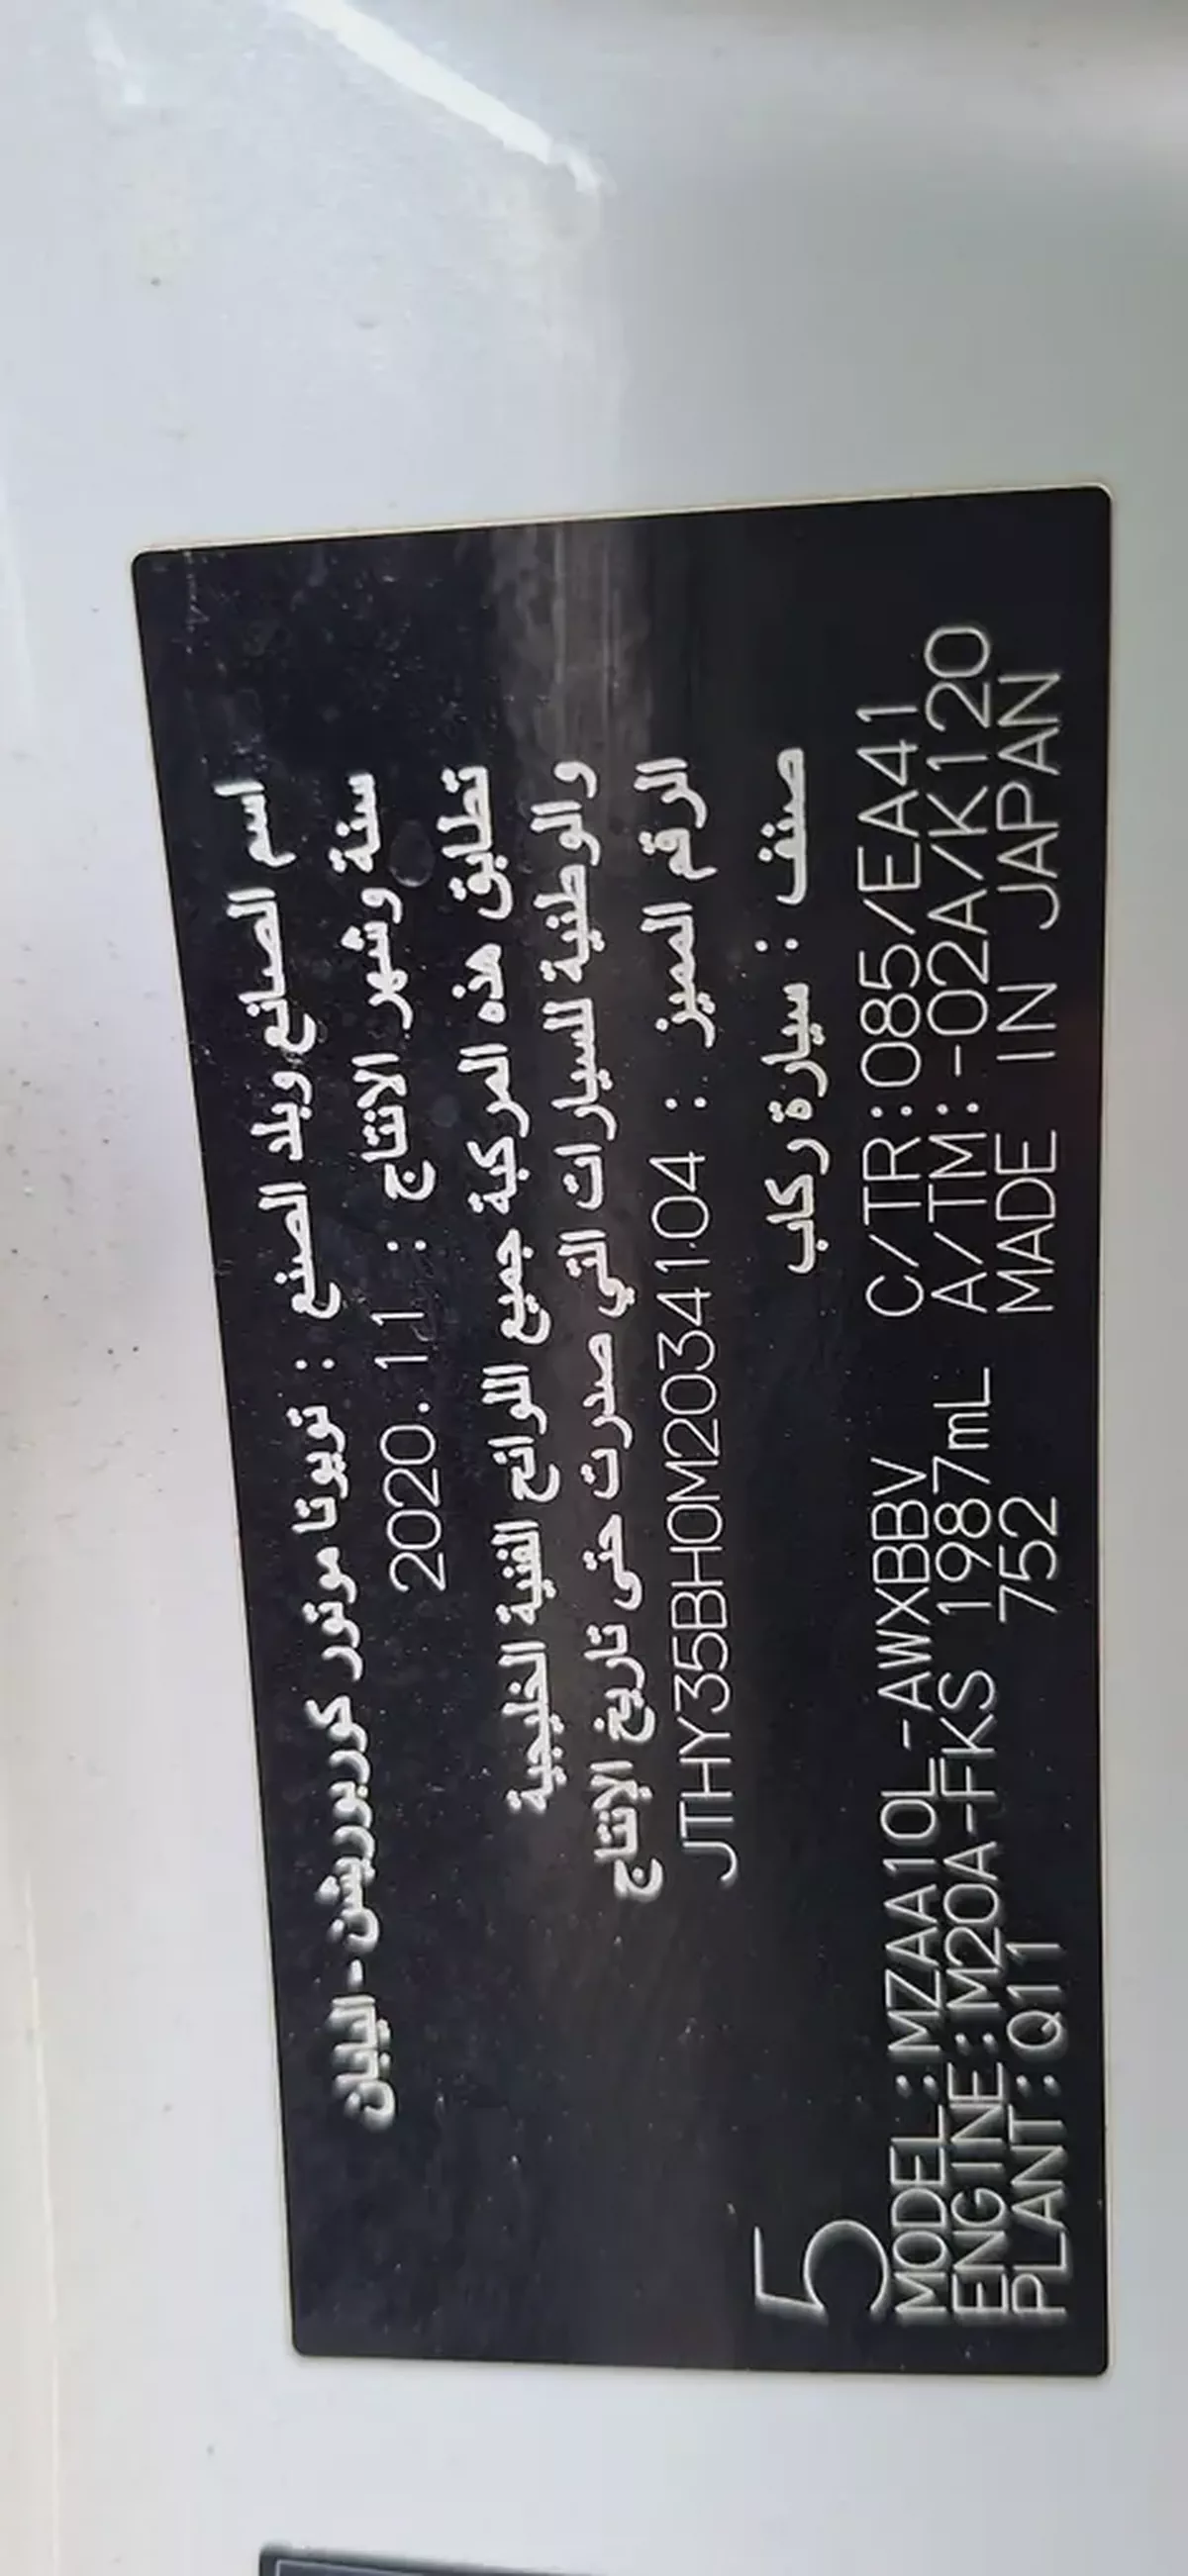 اسم الصانع وبلد الصنع : تويوتا موتور كوربوريشن - اليابان
سنة وشهر الانتاج : 2020.11
تطابق هذه المركبة جميع اللوائح الفنية الخليجية
والوطنية للسيارات التي صدرت حتى تاريخ الإنتاج
الرقم المميز : JTHY35BH0M2034104
صنف : سيارة ركاب
5
MODEL:MZAA10L-AWXBBV C/TR:085/EA41
ENGINE:M20A-FKS 1987mL A/TM:-02A/K120
PLANT:Q11 752 MADE IN JAPAN